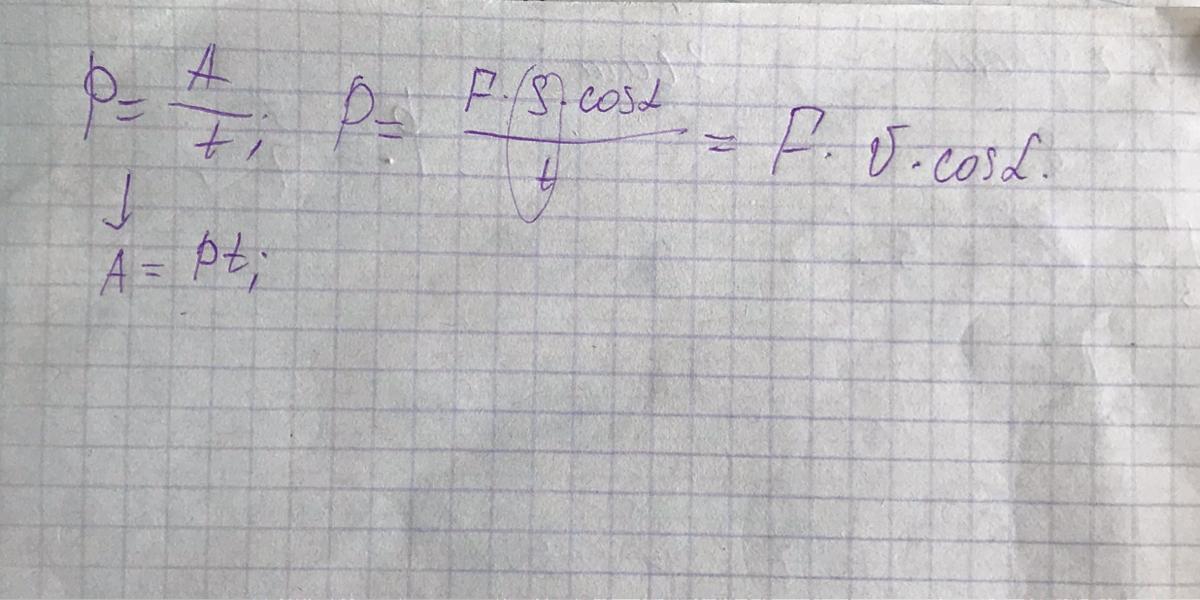 P = A/t; P = F·S·cosα/t = F·υ·cosα.
↓
A = Pt;